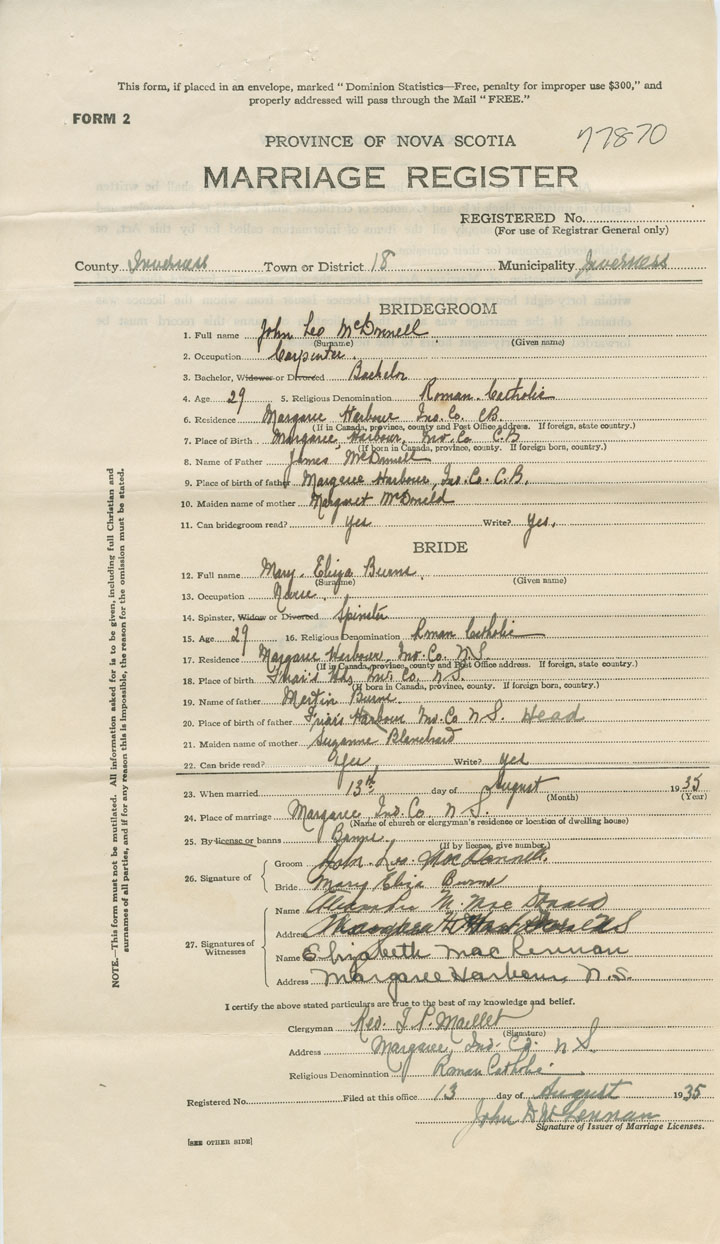 This form, if placed in an envelope, marked "Dominion Statistics—Free, penalty for improper use $300," and
properly addressed will pass through the Mail "FREE."
FORM 2
PROVINCE OF NOVA SCOTIA
77870
MARRIAGE REGISTER
REGISTERED No.
(For use of Registrar General only)
County Inverness Town or District 18 Municipality Inverness
BRIDEGROOM
1. Full name John Leo McDonnell
(Surname) (Given name)
2. Occupation Carpenter
3. Bachelor, Widower or Divorced Bachelor
4. Age 29 5. Religious Denomination Roman Catholic
6. Residence Margaree Harbour Inv. Co. C.B.
(If in Canada, province, county and Post Office address. If foreign, state country.)
7. Place of Birth Margaree Harbour, Inv. Co C.B
(If born in Canada, province, county. If foreign born, country.)
8. Name of Father James McDonnell
9. Place of birth of father Margaree Harbour, Inv. Co. C.B.
10. Maiden name of mother Margaret McDonald
11. Can bridegroom read? yes Write? yes.
BRIDE
12. Full name Mary Eliza Burns
(Surname) (Given name)
13. Occupation Nurse
14. Spinster, Widow or Divorced Spinster
15. Age 29 16. Religious Denomination Roman Catholic
17. Residence Margaree Harbour, Inv. Co. N.S.
(If in Canada, province, county and Post Office address. If foreign, state country.)
18. Place of birth Friar's Hd, Inv. Co. N.S.
(If born in Canada, province, county. If foreign born, country.)
19. Name of father Martin Burns
20. Place of birth of father Friars Harbour Inv. Co N.S. Head
21. Maiden name of mother Suzanne Blanchard
22. Can bride read? Yes Write? yes
23. When married 13th day of August 1935
(Month) (Year)
24. Place of marriage Margaree Inv. Co. N.S.
(Name of church or clergyman's residence or location of dwelling house)
25. By license or banns Banns
(If by license, give number)
26. Signature of
Groom John Leo MacDonnell
Bride Mary Eliza Burns
27. Signatures of
Witnesses
Name Alexander M. MacDonald
Address Margaree NS
Name Elizabeth MacLennan
Address Margaree Harbour, N.S.
I certify the above stated particulars are true to the best of my knowledge and belief.
Clergyman Rev. J. P. Maillet
(Signature)
Address Margaree, Inv. Co. N.S.
Religious Denomination Roman Catholic
Registered No. Filed at this office 13 day of August 1935
John D McLennan
Signature of Issuer of Marriage Licenses.
[SEE OTHER SIDE]
NOTE.—This form must not be mutilated. All information asked for is to be given, including full Christian and
surnames of all parties, and if for any reason this is impossible, the reason for the omission must be stated.